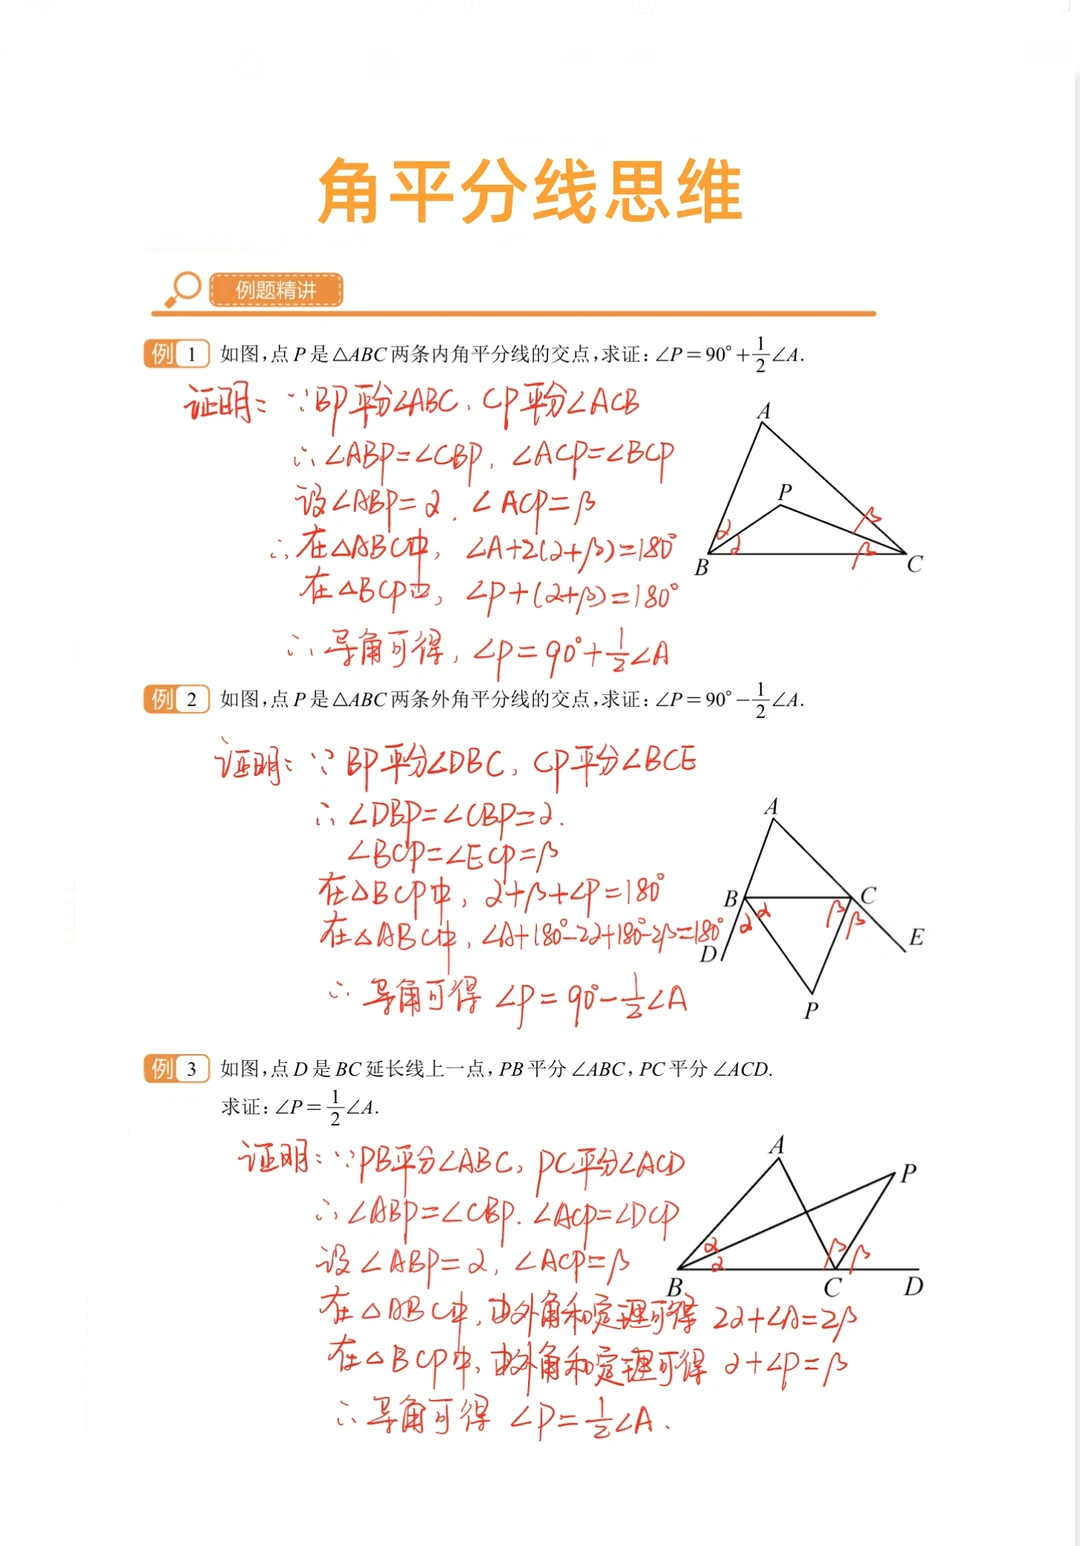 角平分线思维
例题精讲
例 1 如图,点P是△ABC两条内角平分线的交点,求证:∠P=90°+1/2∠A.
证明:∵BP平分∠ABC,CP平分∠ACB
∴∠ABP=∠CBP,∠ACP=∠BCP
设∠ABP=α,∠ACP=β
∴在△ABC中,∠A+2(α+β)=180°
在△BCP中,∠P+(α+β)=180°
∴导角可得,∠P=90°+1/2∠A
A
P
α
α
β
β
B
C
例 2 如图,点P是△ABC两条外角平分线的交点,求证:∠P=90°-1/2∠A.
证明:∵BP平分∠DBC,CP平分∠BCE
∴∠DBP=∠CBP=α.
∠BCP=∠ECP=β
在△BCP中,α+β+∠P=180°
在△ABC中,∠A+180°-2α+180°-2β=180°
∴导角可得∠P=90°-1/2∠A
A
B
C
α
α
β
β
D
E
P
例 3 如图,点D是BC延长线上一点,PB平分∠ABC,PC平分∠ACD.
求证:∠P=1/2∠A.
证明:∵PB平分∠ABC,PC平分∠ACD
∴∠ABP=∠CBP.∠ACP=∠DCP
设∠ABP=α,∠ACP=β
在△ABC中,由外角和定理可得 2α+∠A=2β
在△BCP中,由外角和定理可得 α+∠P=β
∴导角可得 ∠P=1/2∠A.
A
P
α
α
β
β
B
C
D